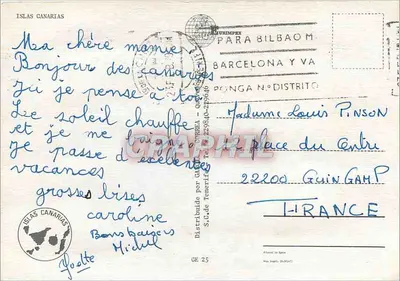 ISLAS CANARIAS
Ma chère mamie
Bonjour des canaries
Ici je pense à toi
Le soleil chauffe
et je me baigne
je passe d'excellentes
vacances
grosses bises
caroline
Bons baisers
Michel
Yvette
ISLAS CANARIAS
PARA BILBAO M
BARCELONA Y VA
PONGA N.º DISTRITO
Madame Louis PINSON
place du Centre
22200 GUINGAMP
FRANCE
CARPHIL
Distribuido por GASTEIZ
S.C. de Tenerife
GE 25